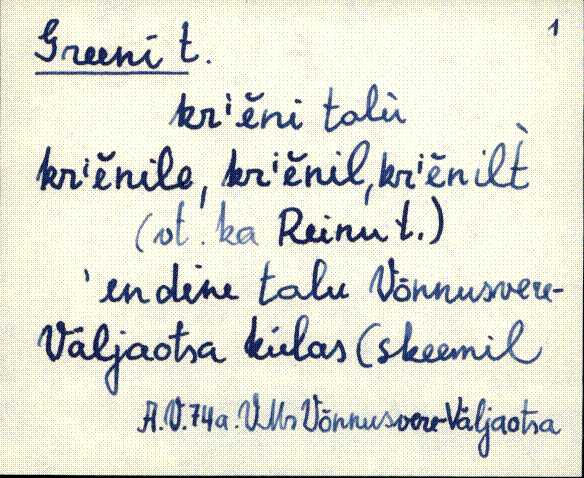 1
Greeni t.
krⁱĕni talù
krⁱĕnile, krⁱĕnil, krⁱĕnilt̀
(vt. ka Reinu t.)
'endine talu Võnnusvere-
Väljaotsa külas (skeemil
A.V. 74a. VMr Võnnusvere-Väljaotsa